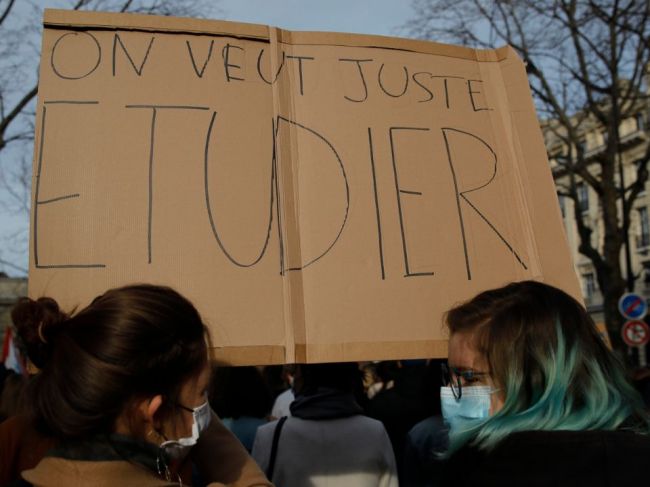 ON VEUT JUSTE
ETUDIER